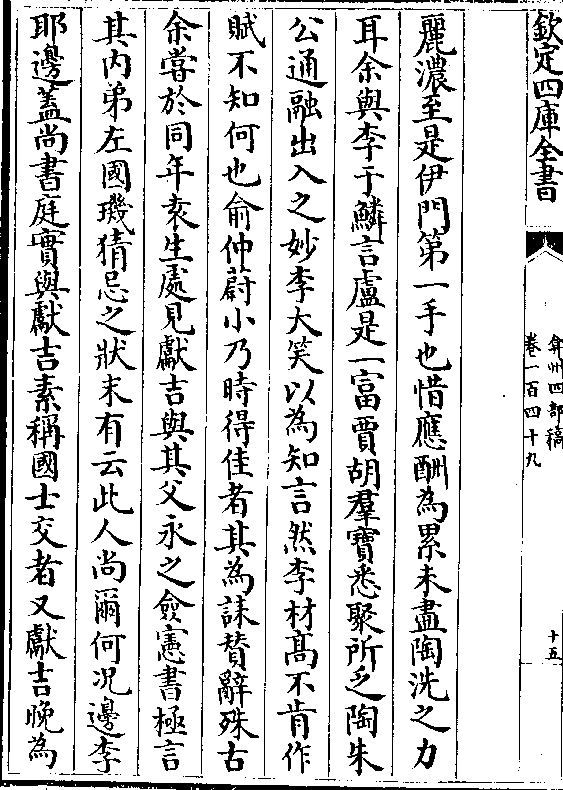 欽定四庫全書
弇州四部稿
卷一百四十九
十五
麗濃至是伊門第一手也惜應酬為累未盡陶洗之力
耳余與李于鱗言盧是一富賈胡羣寶悉聚所乏陶朱
公通融出入之妙李大笑以為知言然李材髙不肯作
賦不知何也俞仲蔚小乃時得佳者其為誄賛辭殊古
余嘗於同年袁生處見獻吉與其父永之僉憲書極言
其内弟左國璣猜忌之狀末有云此人尚爾何况邊李
耶邊蓋尚書庭實與獻吉素稱國士交者又獻吉晩為